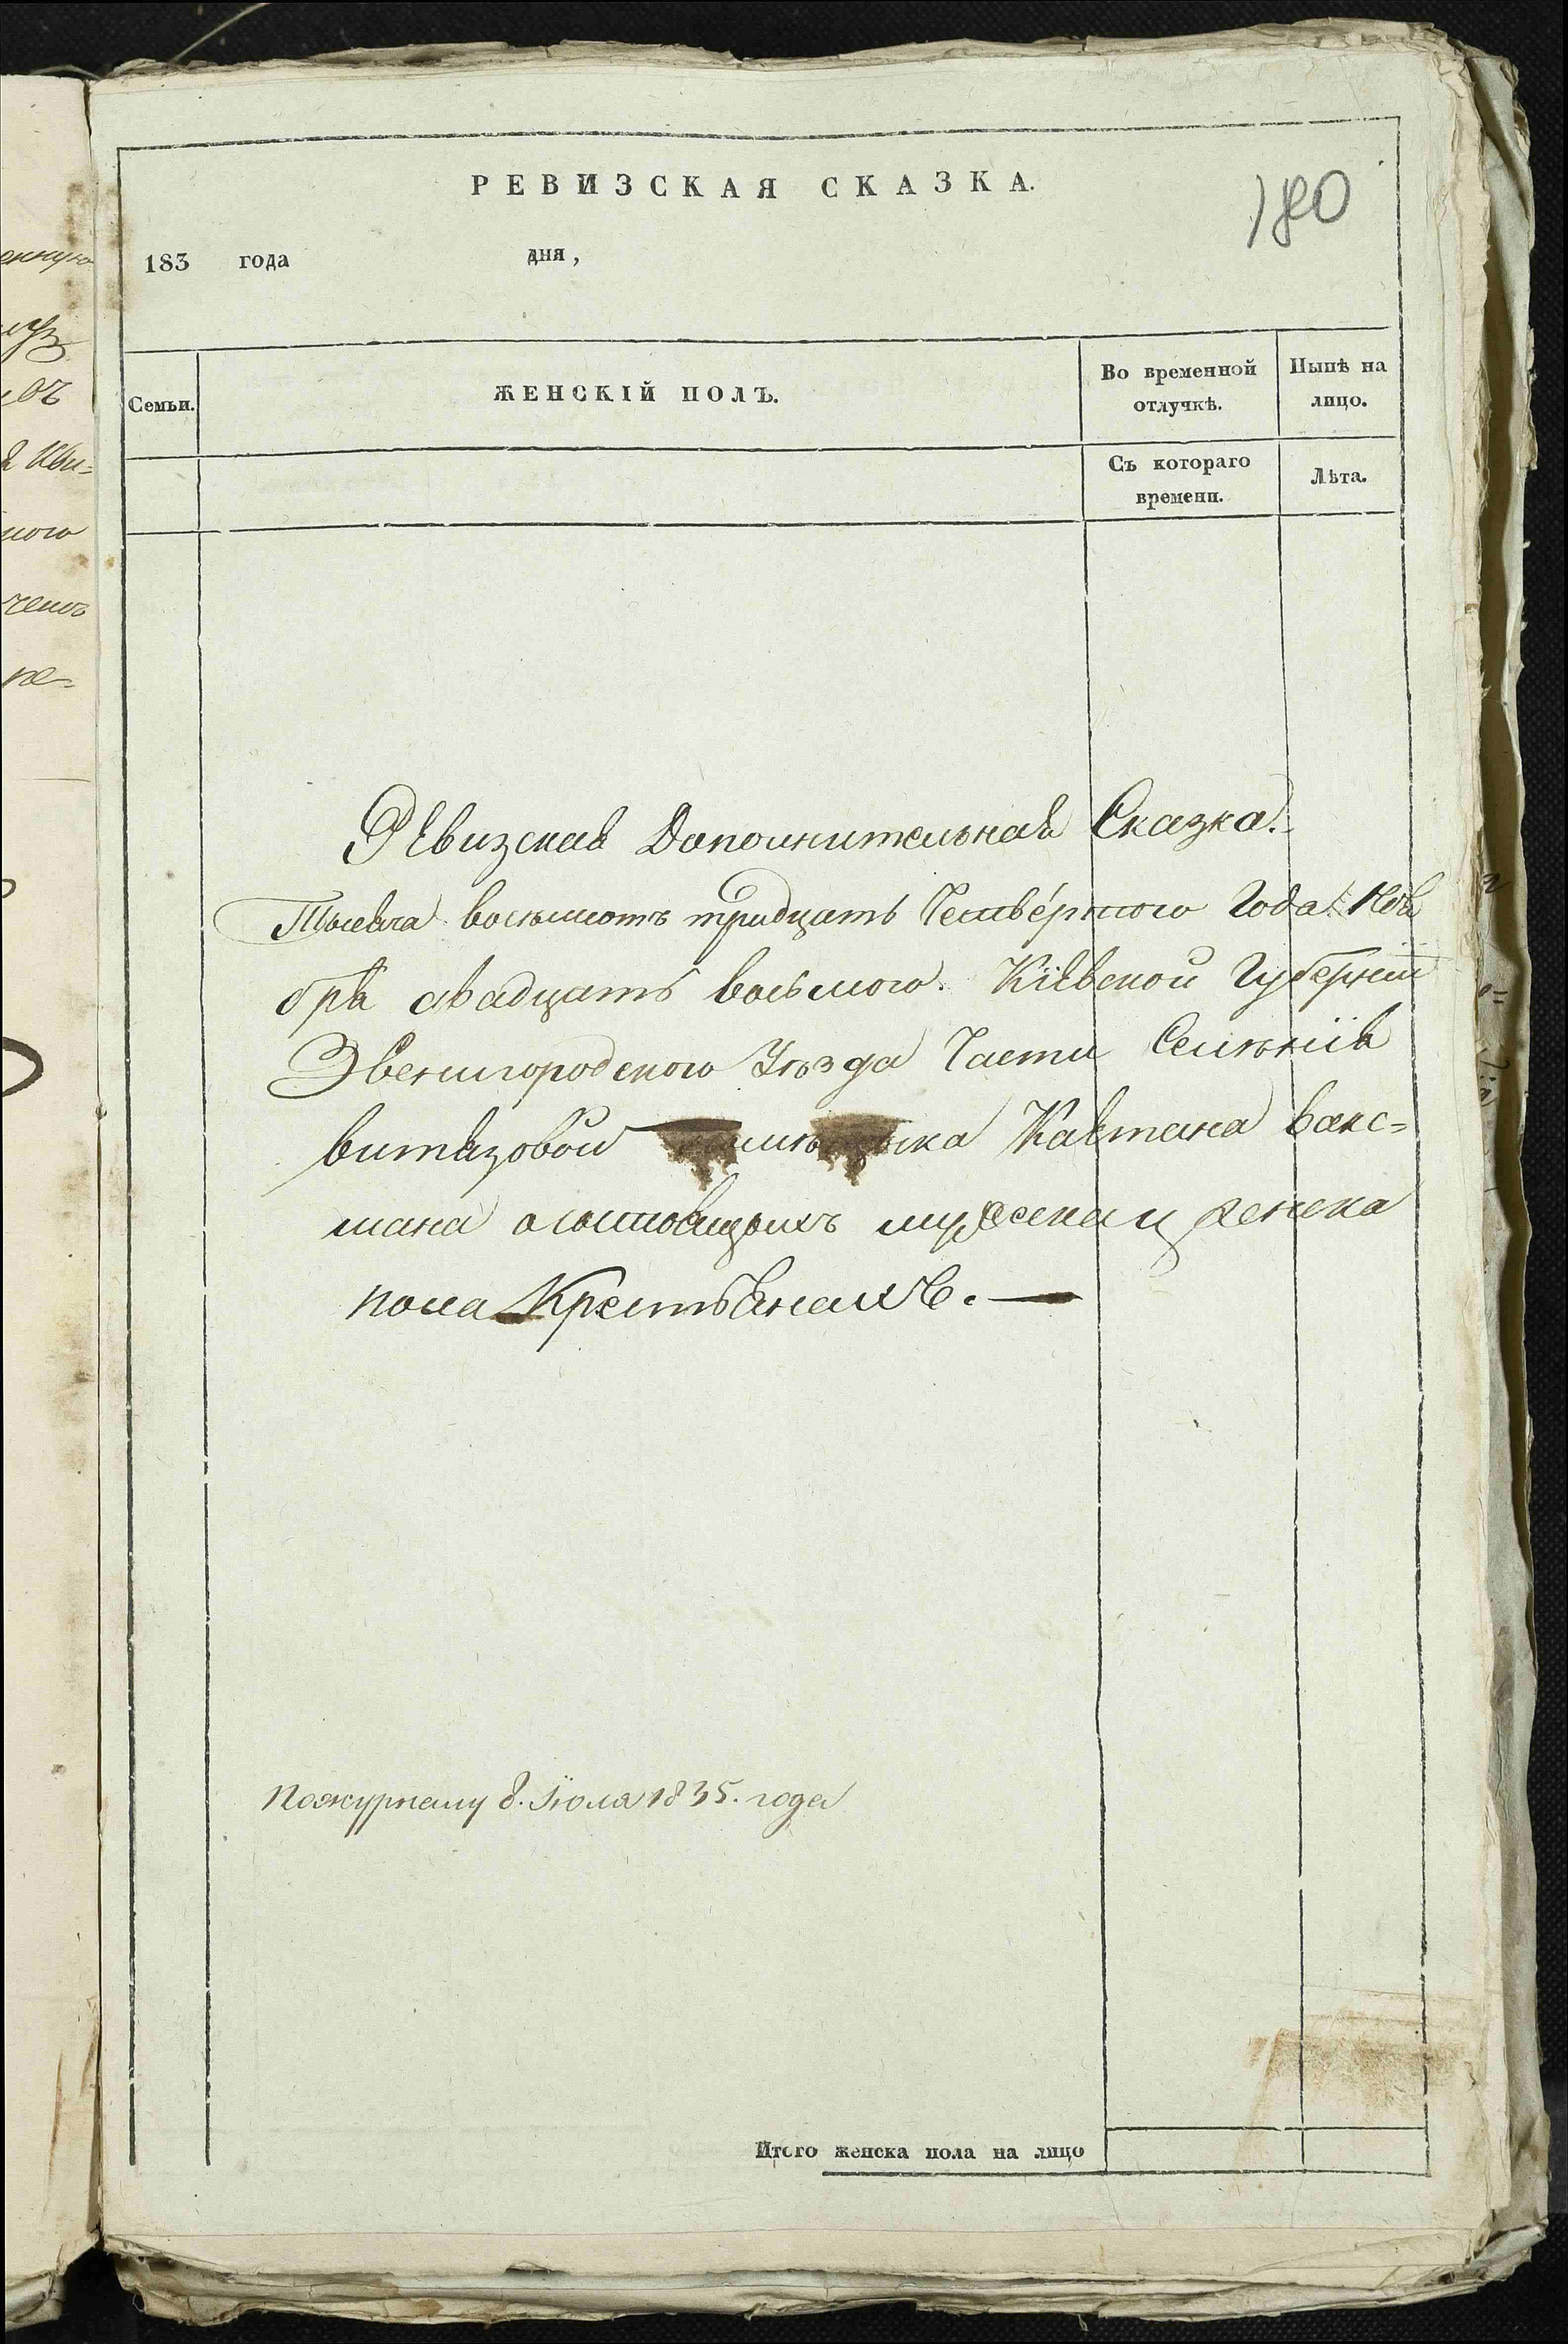 РЕВИЗСКАЯ СКАЗКА.
180
183 года дня,
Семьи.
ЖЕНСКІЙ ПОЛЪ.
Во временной отлучкѣ.
Нынѣ на лицо.
Съ котораго времени.
Лѣта.
Ревизская Дополнительная Сказка.
Тысяча восемьсотъ тридцать Четвертого Года Ноя
бря двадцать восьмого. Кіевской Губерніи
Звенигородского Уѣзда Части Селенія
витязовой помѣщика Каетана вакс=
мана о состоящихъ мужеска и женска
пола Крестьянахъ.
По журналу 8. Іюля 1835. года
Итого женска пола на лицо